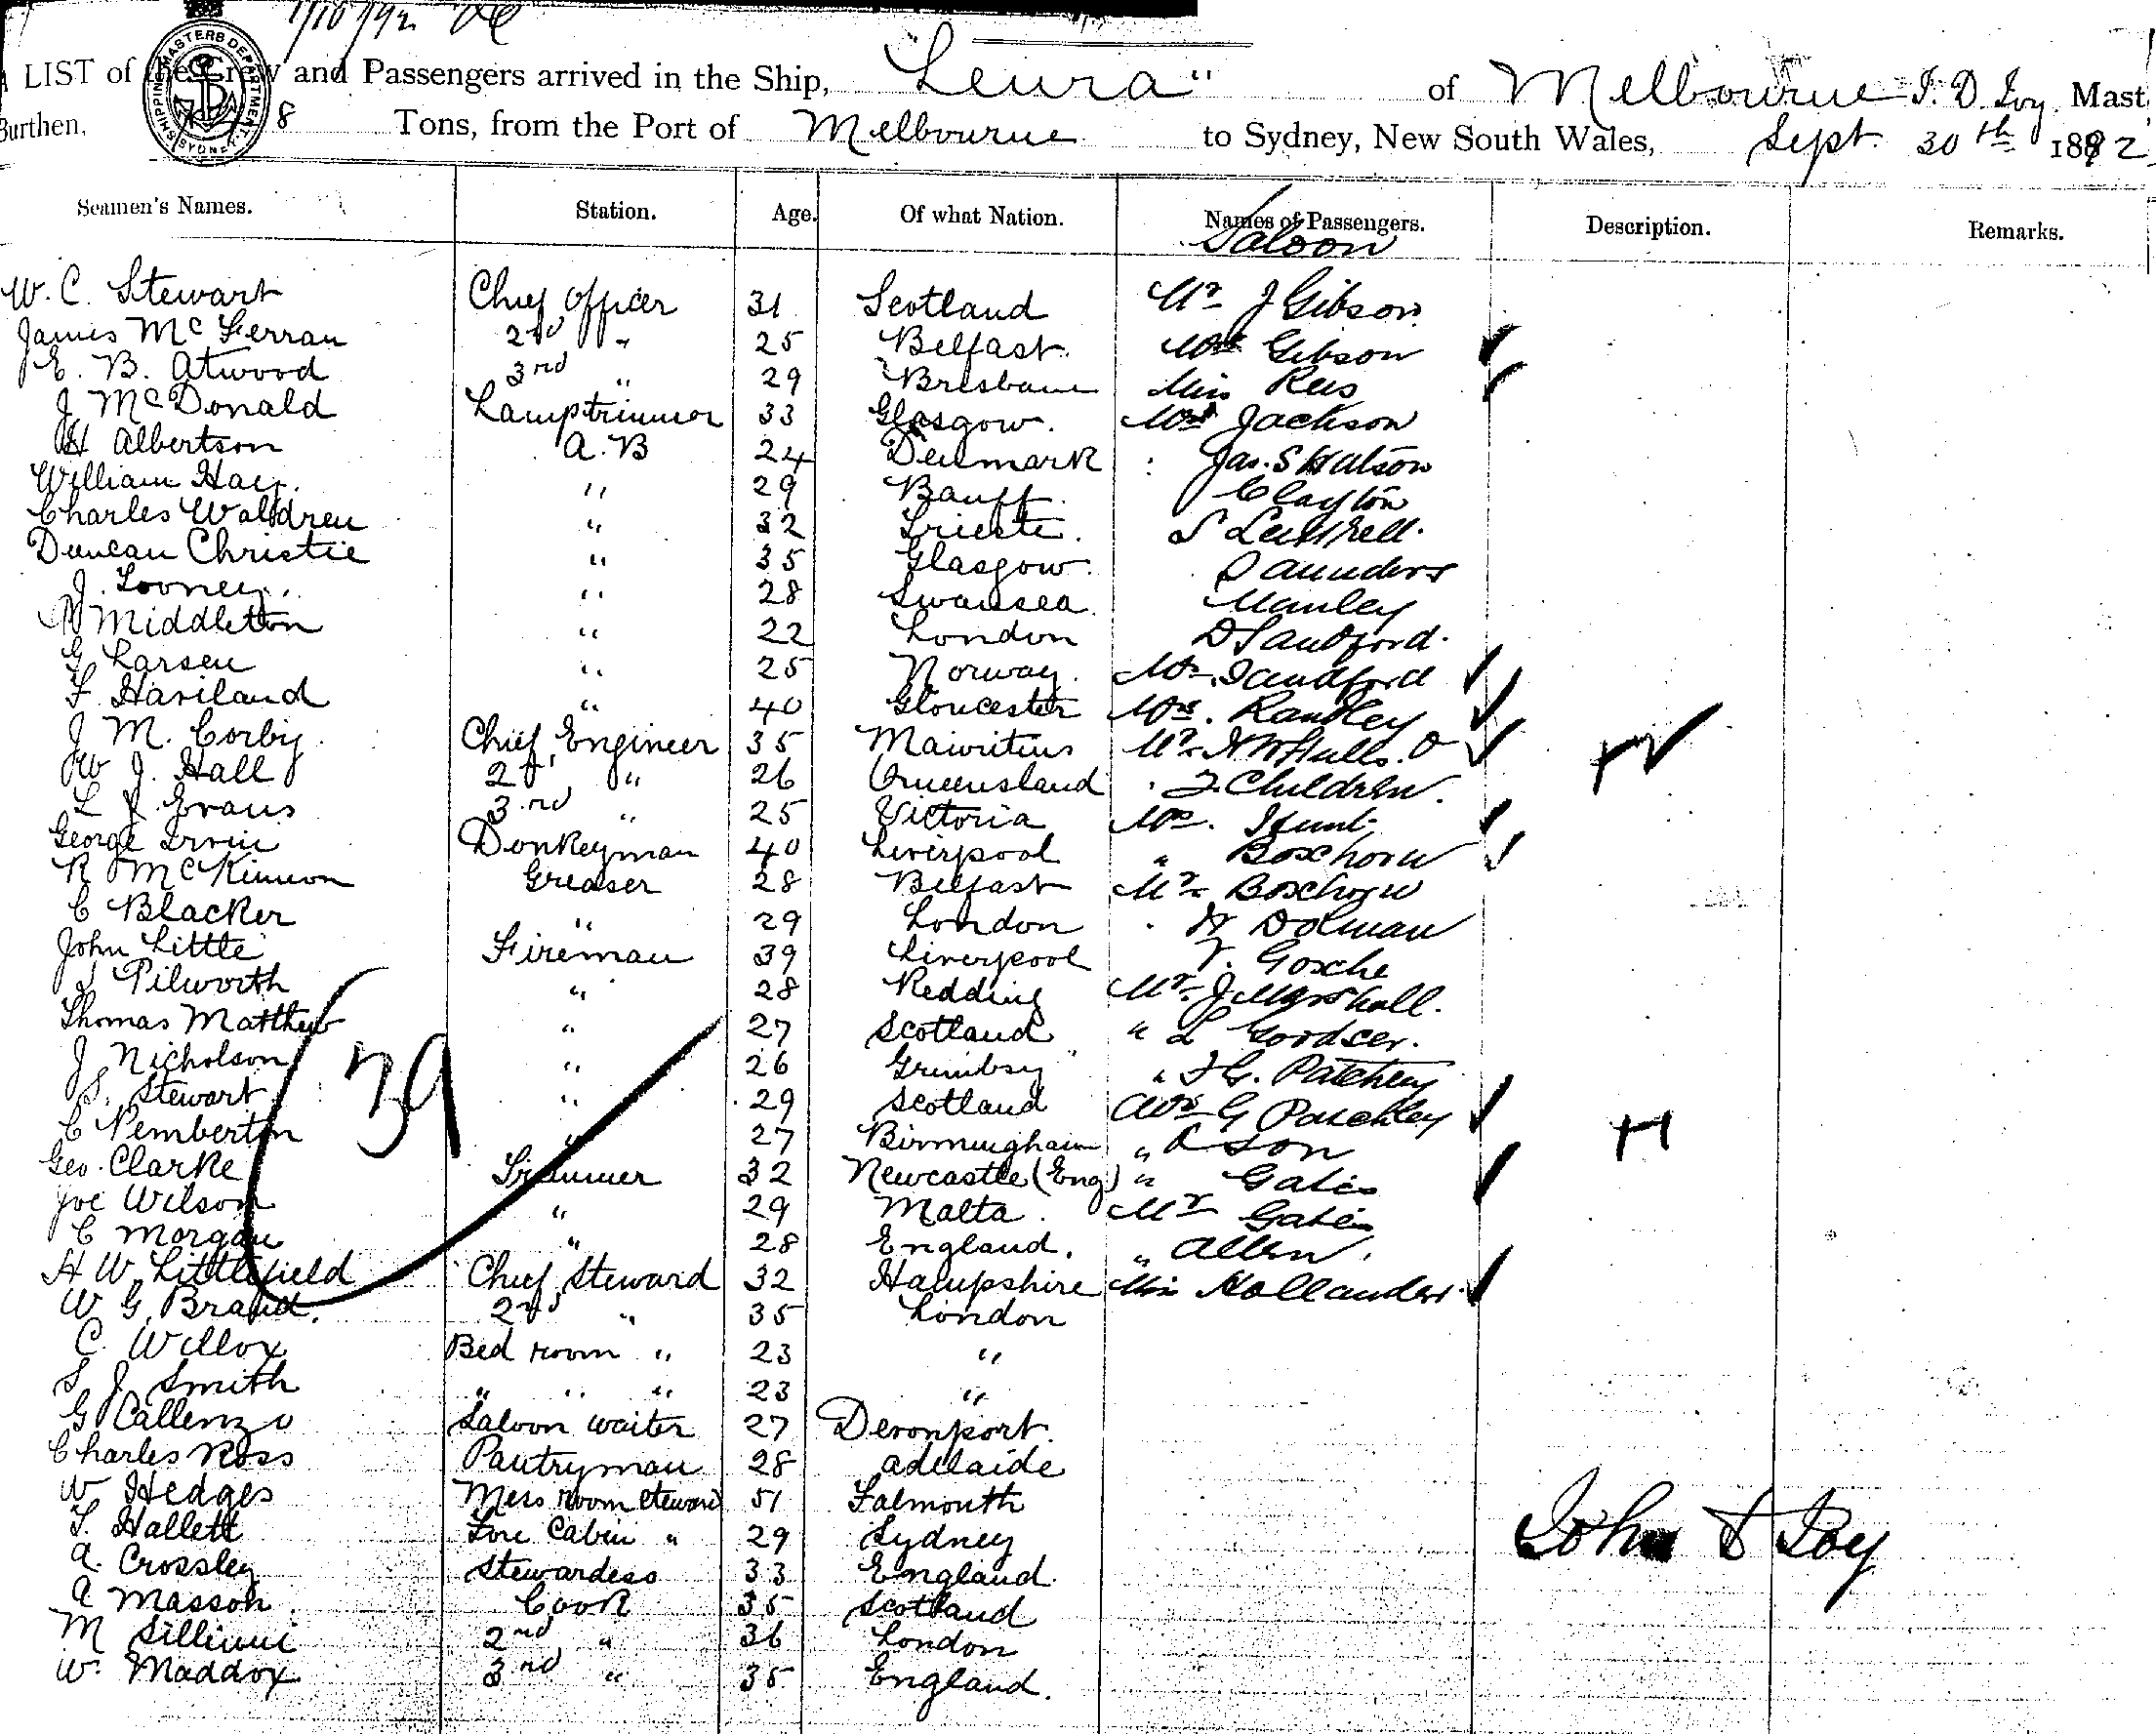 1/10/92
A LIST of the Crew and Passengers arrived in the Ship, "Leura" of Melbourne J. D. Joy Mast
SHIPPING MASTERS DEPARTMENT SYDNEY
Burthen, 8 Tons, from the Port of Melbourne to Sydney, New South Wales, Sept. 30th 1892
Seamen's Names. Station. Age. Of what Nation. Names of Passengers. Description. Remarks.
Saloon
W. C. Stewart Chief Officer 31 Scotland Mr J Gibson
James McFerran 2nd " 25 Belfast Mrs Gibson
E. B. Atwood 3rd " 29 Brisbane Miss Rees
J McDonald Lamptrimmer 33 Glasgow. Mrs Jackson
H Albertson A. B 24 Denmark Jas. S Watson
William Hay " 29 Banff Clayton
Charles Waldren " 32 Trieste. S
Duncan Christie " 35 Glasgow Saunders
J. Looney " 28 Swansea Manley
Middleton " 22 London D Sandford
G Larsen " 25 Norway Mrs Sandford
F. Haviland " 40 Gloucester Mrs. Randley
J M. Corby Chief Engineer 35 Mauritius Mr Hulls
W J. Hall 2nd " 26 Queensland 2 Children.
L J. Evans 3rd " 25 Victoria Mrs. Hunt
George Irvin Donkeyman 40 Liverpool " Boschorn
R McKinnon Greaser 28 Belfast Mr Boschorn
C Blacker " 29 London H Dolman
John Little Fireman 39 Liverpool Gosche
J Pilworth " 28 Redding Mr J Marshall.
Thomas Matthews " 27 Scotland " L
J Nicholson " 26 Grimbsy " G. Patchey
S. Stewart " 29 Scotland Mrs G Patchey
C Pemberton " 27 Birmingham " & Son
Geo. Clarke Trimmer 32 Newcastle (Eng) " Gates
Joe Wilson " 29 Malta Mr Gates
C Morgan " 28 England. " Allen
H W. Littlefield Chief Steward 32 Hampshire Miss Hollander
W G. Brand. 2nd " 35 London
C. Willox Bed room " 23 "
S J Smith " " " 23 "
G Callenzo Saloon Waiter 27 Devonport.
Charles Ross Pantryman 28 Adelaide
W Hedges Mess room Steward 51 Falmouth
T. Hallett Fore Cabin " 29 Sydney
A. Crossley Stewardess 33 England
A Masson Cook 35 Scotland
M 2nd " 36 London
W. Maddox 3rd " 35 England.
39
John D Joy